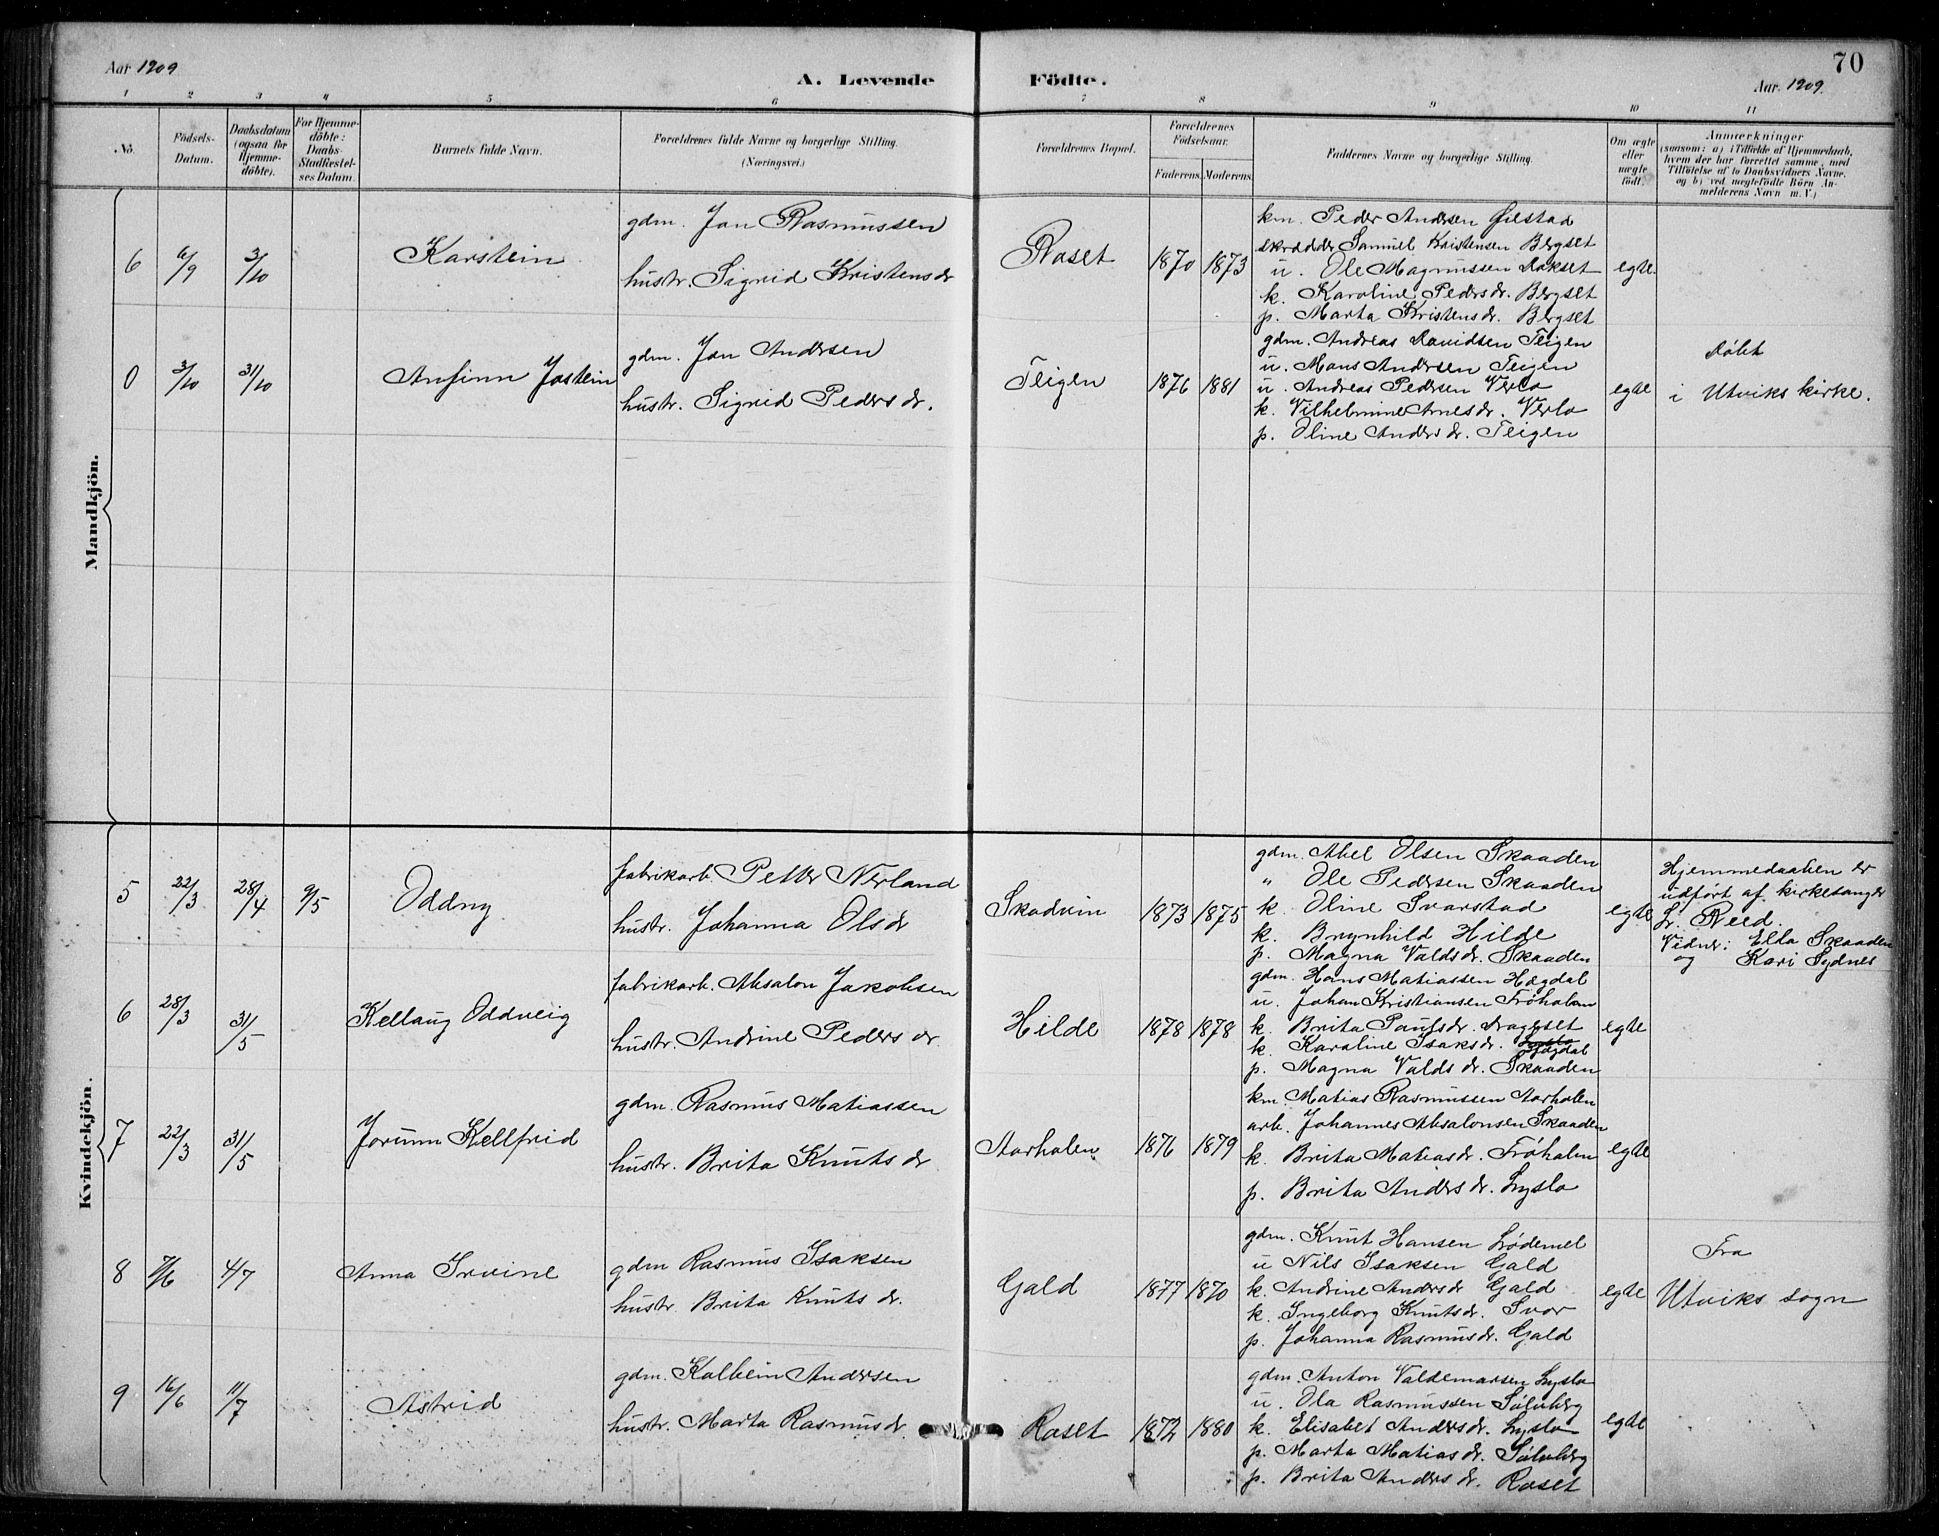 Aar 1909
A. Levende
Födte.
70
Aar. 1909.
1 2 3 4 5 6 7 8 9 10 11
No.
Födsels-
Datum.
Daabsdatum
(ogsaa for
Hjemme-
döbte).
For Hjemme-
döbte:
Daabs-
Stadfestel-
ses Datum.
Barnets fulde Navn.
Forældrenes fulde Navne og borgerlige Stilling.
(Næringsvei.)
Forældrenes Bopæl.
Forældrenes
Födselsaar.
Faderens. Moderens.
Faddernes Navne og borgerlige Stilling.
Om ægte
eller
uægte
födt.
Anmærkninger
(saasom: a) i Tilfælde af Hjemmedaab,
hvem der har forrettet samme, med
Tilföielse af to Daabsvidners Navne.
og b) ved uægtefödte Börn An-
melderens Navn m. V.)
Mandkjön.
6 6/9 3/10
Karstein
gdm. Jon Rasmussen
hustr. Sigrid Kristensdr
Roset
1870 1873
km. Peder Andersen Øiestad
skrædder Samuel Kristensen Bergset
u. Ole Magnussen Lokset
k. Karoline Pedersdr. Bergset
p. Marta Kristensdr. Bergset
egte
0 3/10 31/10
Anfinn Jostein
gdm. Jon Andersen
hustr. Sigrid Pedersdr.
Teigen
1876 1881
gdm. Andreas Davidsen Teigen
u. Mons Andersen Teigen
u. Andreas Pedersen Verlo
k. Vilhelmine Arnesdr. Verlo
p. Oline Andersdr. Teigen
egte
Døbt
i Utviks kirke.
Kvindekjön.
5 22/3 28/4 9/5
Oddny
fabrikarb. Petter Nerland
hustr. Johanna Olsdr
Skadvin
1873 1875
gdm. Abel Olsen Skaaden
" Ole Pedersen Skaaden
k. Oline Svarstad
k. Brynhild Hilde
p. Magna Valdsdr. Skaaden
egte
Hjemmedaaben er
udført af kirkesanger
L. Reed.
Vidner: Ella Skaaden
og Kari Sydnes
6 28/3 31/5
Kellaug Oddveig
fabrikarb. Absalon Jakobsen
hustr. Andrine Pedersdr.
Hilde
1878 1878
gdm. Hans Matiassen Hogdal
u. Johan Kristiansen Frøholm
k. Brita Paulsdr. Drageset
k. Karoline Isaksdr. Lyslo Hogdal
p. Magna Valdsdr. Skaaden
egte
7 22/3 31/5
Jorunn Kellfrid
gdm. Rasmus Matiassen
hustr. Brita Knutsdr
Aarholen
1876 1879
km. Matias Rasmussen Aarholen
arb. Johannes Absalonsen Skaaden
k. Brita Matiasdr. Frøholm
p. Brita Andersdr. Lyslo
egte
8 7/6 4/7
Anna Irvine
gdm Rasmus Isaksen
hustr. Brita Knutsdr.
Gald
1877 1870
gdm. Knut Hansen Lødemel
u Nils Isaksen Gald
k. Andrine Andersdr Gald
k. Ingeborg Knutsdr. Svor
p. Johanna Rasmusdr. Gald
egte
Fra
Utviks sogn
9 16/6 11/7
Astrid
gdm. Kolbein Andersen
hustr. Marta Rasmusdr
Roset
1872 1880
gdm. Anton Valdemarsen Lyslo
u. Ola Rasmussen Sølvberg
k. Elisabet Andersdr. Lyslo
p. Marta Matiasdr. Sølvberg
p. Brita Andersdr. Roset
egte